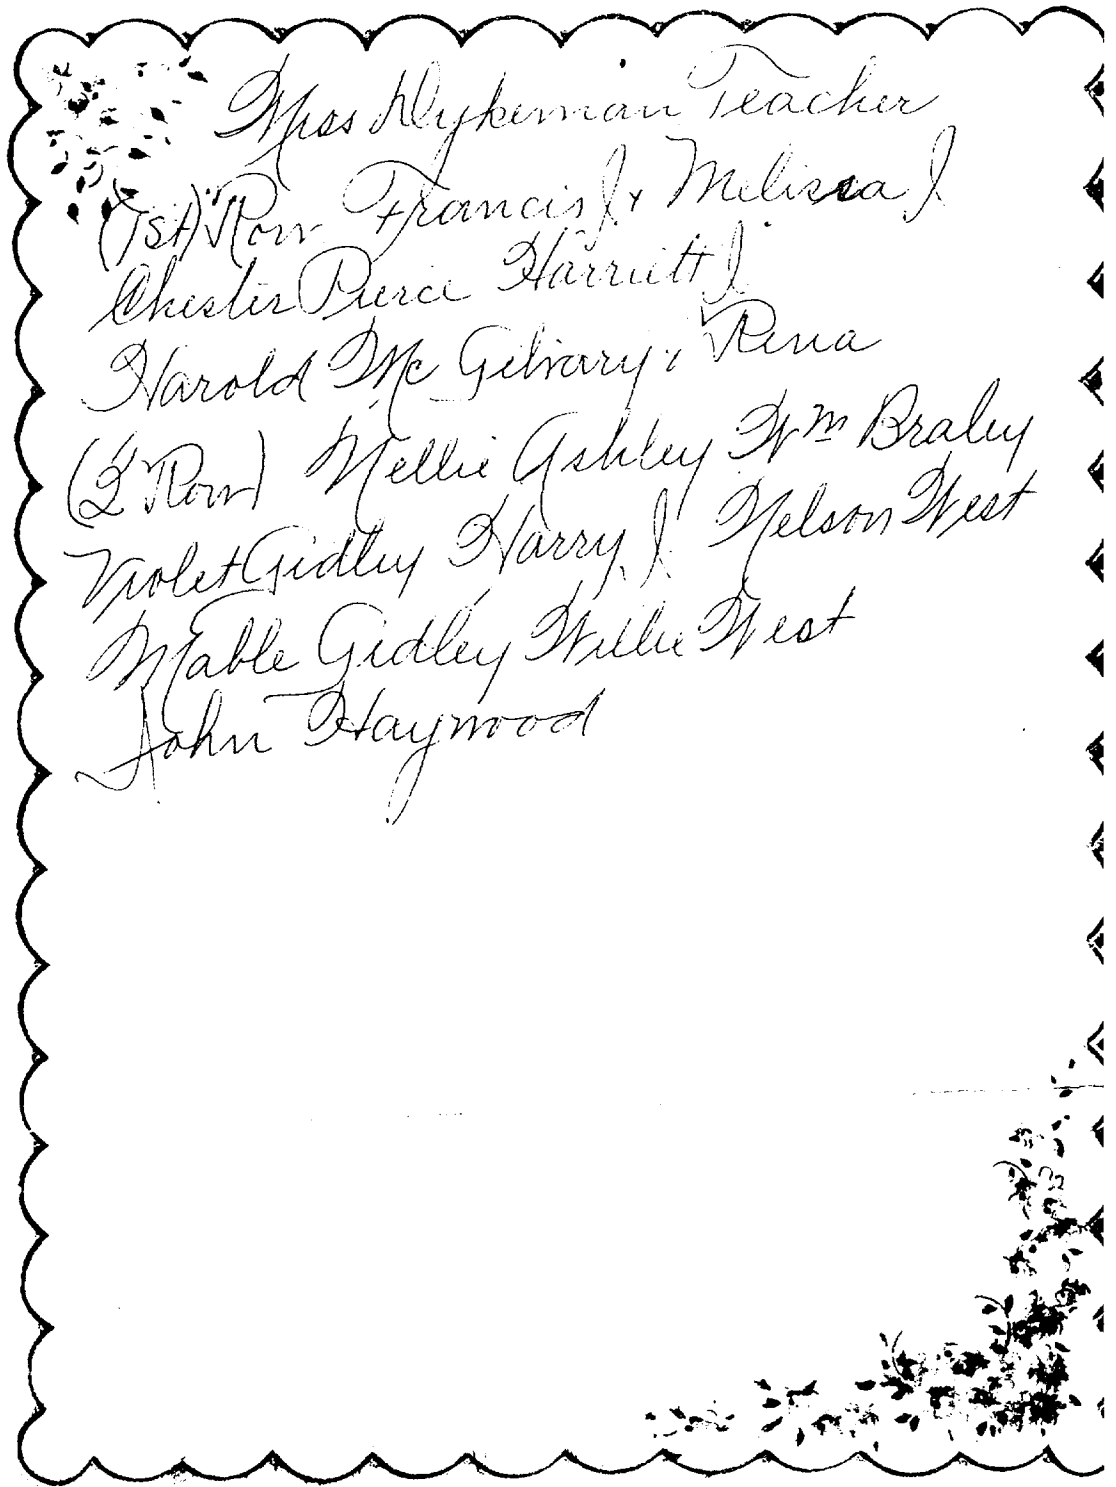 Miss Dykeman Teacher
(1st) Row Francis J & Melissa J
Chester Pierce Harriett J
Harold Mc Gilvary & Rena
(2 Row) Nellie Ashley Wm Braley
Violet Gidley Harry J Nelson West
Mable Gidley Willie West
John Haywood